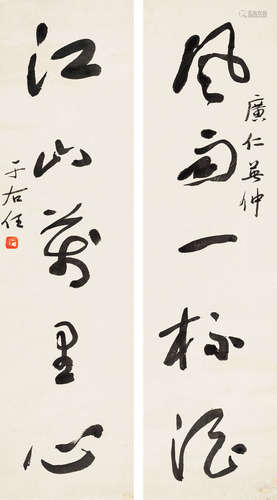 風雨一杯酒
廣仁吾仲
江山萬里心
于右任